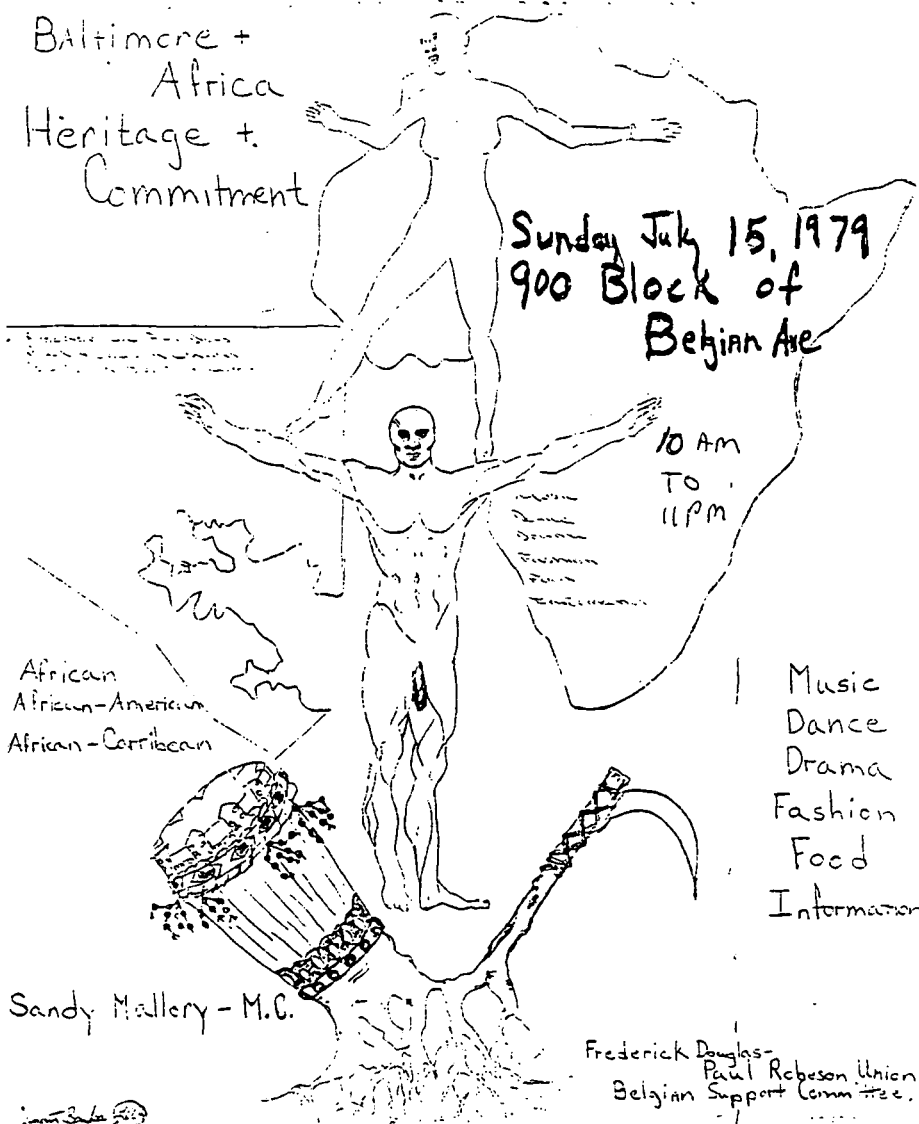 Baltimore +
Africa
Heritage +
Commitment
Sunday July 15, 1979
900 Block of
Belgian Ave
10 AM
TO
11 PM
African
African-American
African-Carribean
Music
Dance
Drama
Fashion
Food
Information
Sandy Mallery - M.C.
Frederick Douglas-
Paul Robeson Union
Belgian Support Committee.